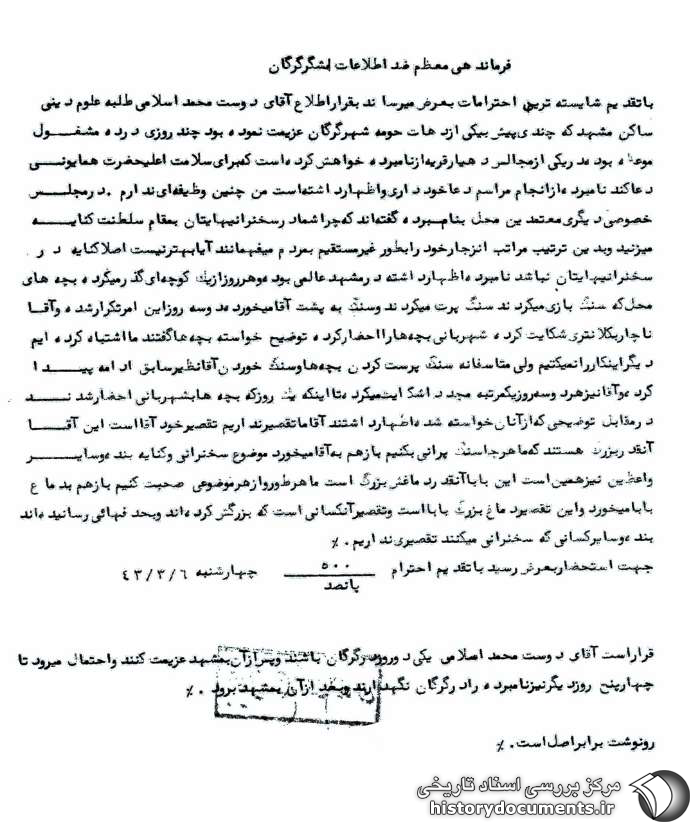 فرماندهی معظم ضد اطلاعات لشگر گرگان
با تقدیم شایسته ترین احترامات بعرض میرساند بقرار اطلاع آقای دوست محمد اسلامی طلبه علوم دینی
ساکن مشهد که چندی پیش بیکی از دهات حومه شهر گرگان عزیمت نموده بود چند روزی در ده مشغول
موعظه بوده در یکی از مجالس دهیار قریه از نامبرده خواهش کرده است که برای سلامت اعلیحضرت همایونی
دعا کند نامبرده از انجام مراسم دعا خودداری و اظهار داشته است من چنین وظیفه‌ای ندارم . در مجلس
خصوصی دیگری معتمدین محل بنامبرده گفته‌اند که چرا شما در سخنرانیهایتان بمقام سلطنت کنایه
میزنید و بدین ترتیب مراتب انزجار خود را بطور غیر مستقیم بمردم میفهمانند آیا بهتر نیست اصلا کنایه در
سخنرانیهایتان نباشد نامبرده اظهار داشته در مشهد عالمی بوده و هر روز از یک کوچه‌ای گذر میکرده بچه های
محل که سنگ بازی میکردند سنگ پرت میکردند و سنگ به پشت آقا میخورده دو سه روز این امر تکرار شده و آقا
ناچار بکلانتری شکایت کرده شهربانی بچه‌ها را احضار کرده توضیح خواسته بچه‌ها گفتند ما اشتباه کرده ایم
دیگر اینکار را نمیکنیم ولی متاسفانه سنگ پرست کردن بچه‌ها و سنگ خوردن آقا نظیر سابق ادامه پیدا
کرده و آقا نیز هر دو سه روز یکمرتبه مجددا شکایت میکرده تا اینکه یک روز که بچه ها بشهربانی احضار شدند
در مقابل توضیحی که از آنان خواسته شده اظهار داشتند آقا ما تقصیر نداریم تقصیر خود آقا است این آقا
آنقدر بزرگ هستند که ما هر جا سنگ پرانی بکنیم بازهم به آقا میخورد موضوع سخنرانی و کنایه بنده و سایر
واعظین نیز همین است این بابا آنقدر دماغش بزرگ است ما هر طور و از هر موضوعی صحبت کنیم بازهم بدماغ
بابا میخورد و این تقصیر دماغ بزرگ بابا است و تقصیر آنکسانی است که بزرگش کرده‌اند و بحد نهائی رسانیده‌اند
بنده و سایر کسانی که سخنرانی میکنند تقصیری نداریم . ٪
جهت استحضار بعرض رسید با تقدیم احترام ۵۰۰ پانصد چهارشنبه ۴۳/۳/۶
قرار است آقای دوست محمد اسلامی یکی دو روز در گرگان باشند و پس از آن بمشهد عزیمت کنند و احتمال میرود تا
چهار پنج روز دیگر نیز نامبرده را در گرگان نگهدارند و بعد از آن بمشهد برود . ٪
رونوشت برابر اصل است . ٪
مرکز بررسی اسناد تاریخی
historydocuments.ir